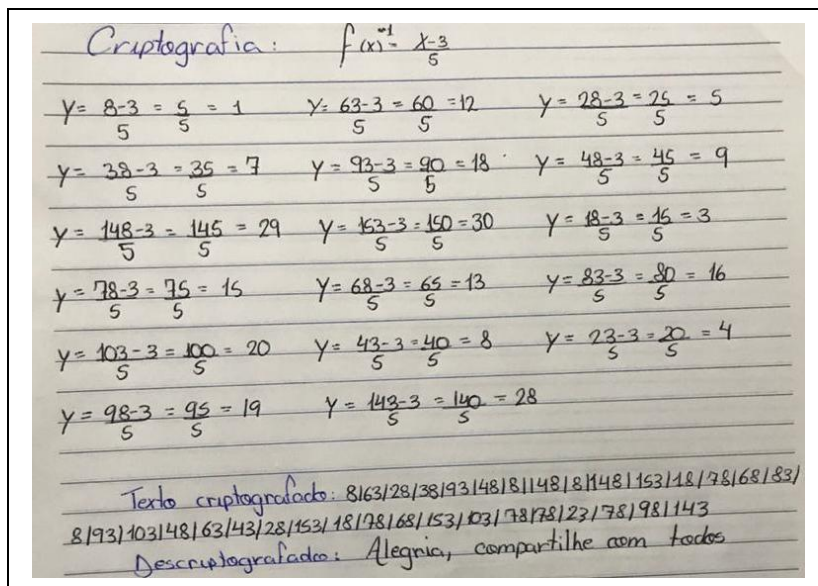 Criptografia: f(x)⁻¹ = x-3/5
y = 8-3/5 = 5/5 = 1 y = 63-3/5 = 60/5 = 12 y = 28-3/5 = 25/5 = 5
y = 38-3/5 = 35/5 = 7 y = 93-3/5 = 90/5 = 18 y = 48-3/5 = 45/5 = 9
y = 148-3/5 = 145/5 = 29 y = 153-3/5 = 150/5 = 30 y = 18-3/5 = 15/5 = 3
y = 78-3/5 = 75/5 = 15 y = 68-3/5 = 65/5 = 13 y = 83-3/5 = 80/5 = 16
y = 103-3/5 = 100/5 = 20 y = 43-3/5 = 40/5 = 8 y = 23-3/5 = 20/5 = 4
y = 98-3/5 = 95/5 = 19 y = 143-3/5 = 140/5 = 28
Texto criptografado: 8/63/28/38/93/48/8/148/8/148/153/18/78/68/83/
8/93/103/48/63/43/28/153/18/78/68/153/103/78/78/23/78/98/143
Descriptografado: Alegria, compartilhe com toodos